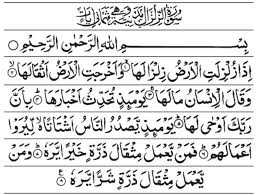 سورة الزلزال وهي ثماني آيات
بِسْمِ اللهِ الرَّحْمٰنِ الرَّحِيْمِ
اِذَا زُلْزِلَتِ الْاَرْضُ زِلْزَالَهَا ۝ وَاَخْرَجَتِ الْاَرْضُ اَثْقَالَهَا ۝
وَقَالَ الْاِنْسَانُ مَا لَهَا ۝ يَوْمَئِذٍ تُحَدِّثُ اَخْبَارَهَا ۝ بِاَنَّ
رَبَّكَ اَوْحٰى لَهَا ۝ يَوْمَئِذٍ يَّصْدُرُ النَّاسُ اَشْتَاتًا ۙ لِّيُرَوْا
اَعْمَالَهُمْ ۝ فَمَنْ يَّعْمَلْ مِثْقَالَ ذَرَّةٍ خَيْرًا يَّرَهٗ ۝ وَمَنْ
يَّعْمَلْ مِثْقَالَ ذَرَّةٍ شَرًّا يَّرَهٗ ۝